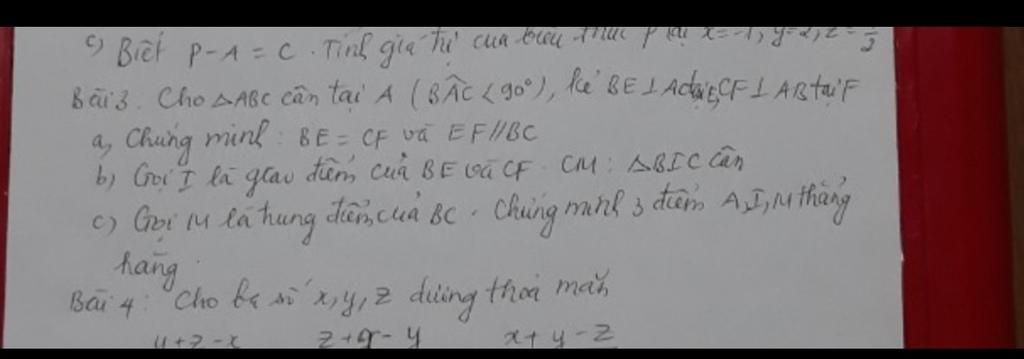 c) Biết P-A = C. Tính giá trị của biểu thức P tại x=-1, y=2, z=
Bài 3. Cho △ABC cân tại A (BÂC < 90°), kẻ BE⊥AC tại E, CF⊥AB tại F
a, Chứng minh: BE = CF và EF//BC
b) Gọi I là giao điểm của BE và CF. CM: △BIC cân
c) Gọi M là trung điểm của BC. Chứng minh 3 điểm A, I, M thẳng
hàng.
Bài 4: Cho ba số x, y, z dương thỏa mãn
y+z-x z+x-y x+y-z